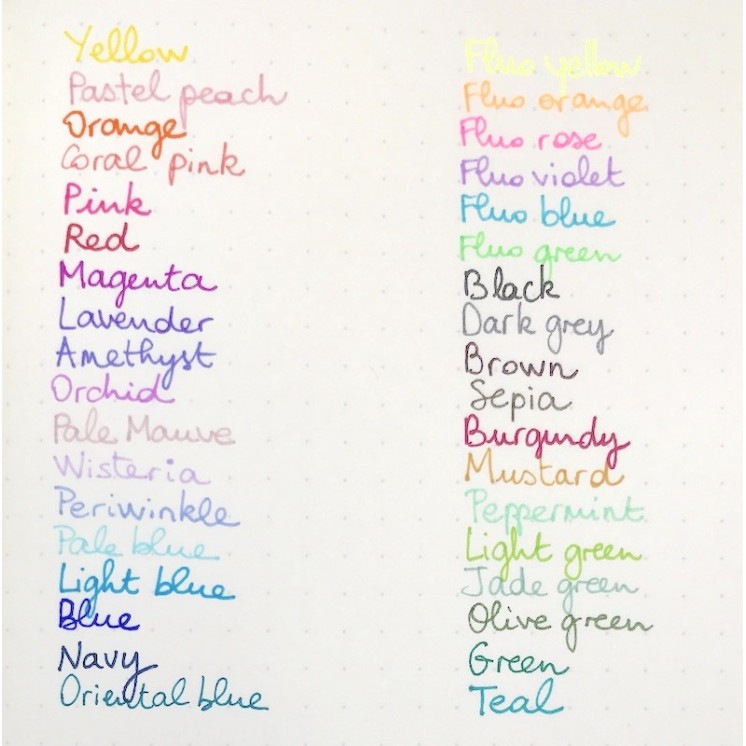 Yellow
Pastel peach
Orange
Coral pink
Pink
Red
Magenta
Lavender
Amethyst
Orchid
Pale Mauve
Wisteria
Periwinkle
Pale blue
Light blue
Blue
Navy
Oriental blue
Fluo yellow
Fluo orange
Fluo rose
Fluo violet
Fluo blue
Fluo green
Black
Dark grey
Brown
Sepia
Burgundy
Mustard
Peppermint
Light green
Jade green
Olive green
Green
Teal